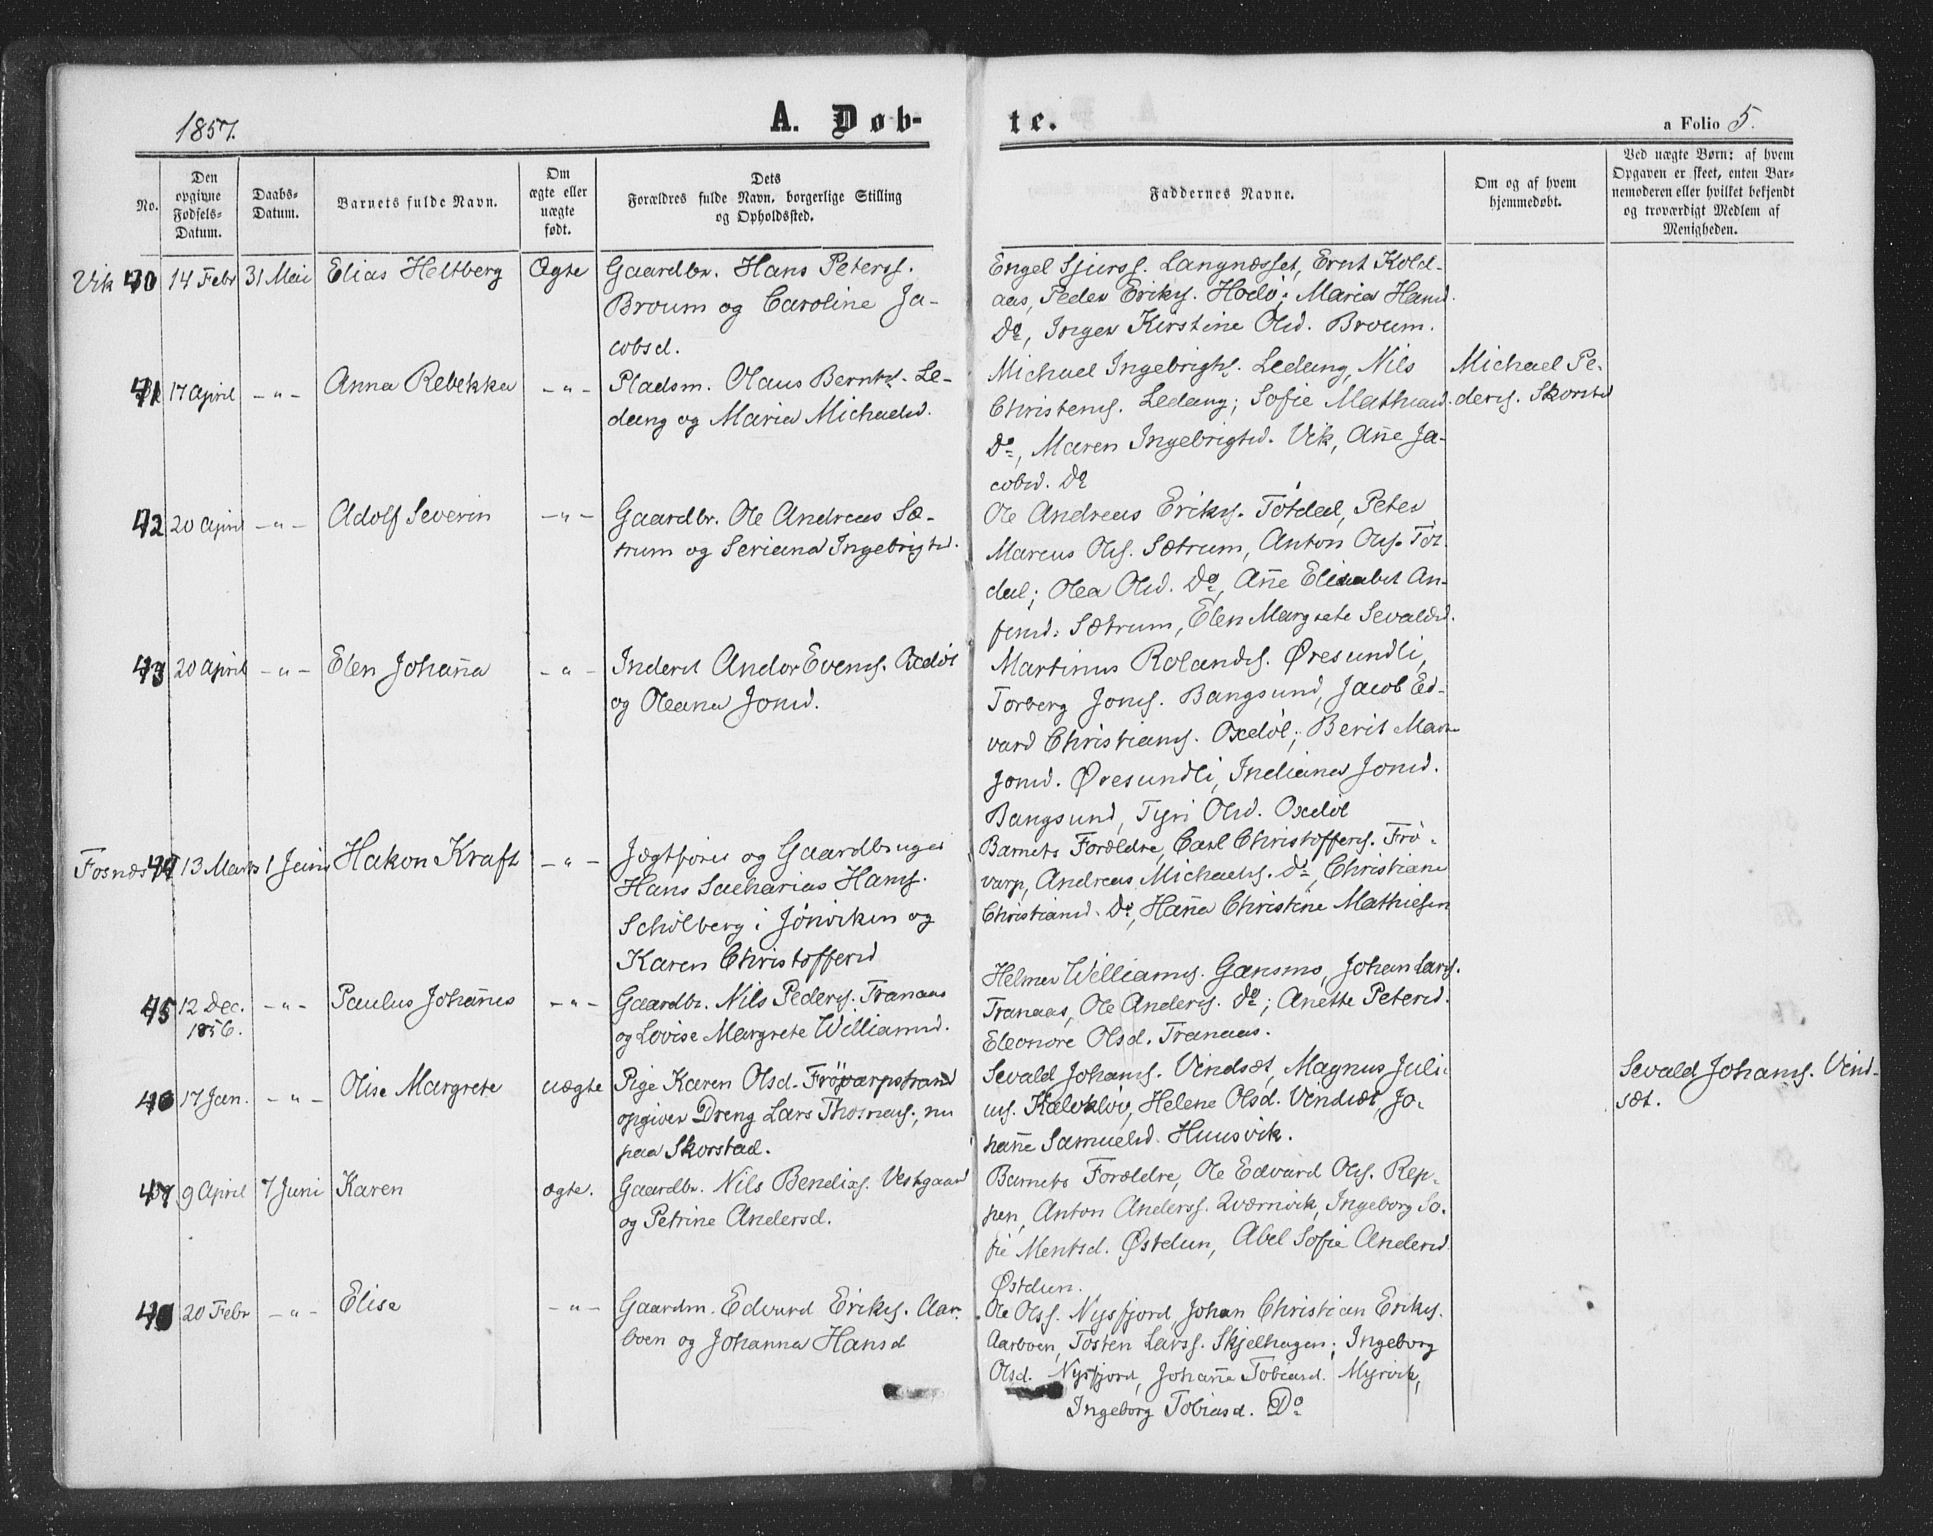 1857.
A. Døb-
te.
a Folio 5.
No.
Den opgivne Fødsels-Datum.
Daabs-Datum.
Barnets fulde Navn.
Om ægte eller uægte født.
Dets Forældres fulde Navn, borgerlige Stilling og Opholdssted.
Faddernes Navne.
Om og af hvem hjemmedøbt.
Ved uægte Børn: af hvem Opgaven er skeet, enten Barnemoderen eller hvilket bekjendt og troværdigt Medlem af Menigheden.
Vik 40 14 Febr 31 Mai Elias Heltberg Ægte
Gaardbr. Hans Peterss.
Broum og Caroline Ja-
cobsd.
Engel Sjurss. Langnæsset, Ernt Kold-
aas, Peder Eriks. Hodø; Maria Hansd.
Do, Inger Kirstine Olsd. Broum.
41 17 April -"- Anna Rebekka -"-
Pladsm. Olaus Bernts. Le-
dang og Maria Michaelsd.
Michael Ingebrigts. Ledang, Nils
Christens. Ledang; Sofie Mathiasd.
Do, Maren Ingebrigtsd. Vik, Anne Ja-
cobsd. Do
Michael Pe-
derss. Skorstad
42 20 April -"- Adolf Severin -"-
Gaardbr. Ole Andreas Sæ-
trum og Seriana Ingebrigtsd.
Ole Andreas Eriks. Tøtdal, Peter
Marcus Ols. Sætrum, Anton Ols. Tøt-
dal; Olea Olsd. Do, Anne Elisabet An-
finsd. Sætrum, Elen Margrete Sevaldsd.
43 20 April -"- Elen Johanna -"-
Inderst Andor Evens. Oxdøl
og Oleana Jonsd.
Martinus Rolands. Øresundli,
Torberg Jons. Bangsund, Jacob Ed-
vard Christians. Oxdøl; Berit Mar
Jonsd. Øresundli, Indiana Jonsd.
Bangsund, Tyri Olsd. Oxdøl
Fosnæs 44 13 Marts 1 Juni Hakon Kraft -"-
Jægtfører og Gaardbruger
Hans Sacharias Hans.
Schølberg i Jønviken og
Karen Christoffersd
Barnets Forældre, Carl Christoffers. Frø-
varp, Andreas Michaels. Do, Christiane
Christiansd. Do, Hanna Christine Mathiesen
45 12 Dec. 1856. -"- Paulus Johannes -"-
Gaardbr. Nils Peders. Tranaas
og Lovise Margrete Williamsd.
Helmer Williams. Gansmo, Johan Lars.
Tranaas, Ole Anders. Do; Anette Petersd.
Eleonore Olsd. Tranaas.
46 17 Jan. -"- Olise Margrete uægte
Pige Karen Olsd. Frøvarpstrand
opgiver Dreng Lars Thomas., nu
paa Skorstad.
Sevald Johans. Vindsæt, Magnus Juli-
us. Kalokløv, Helene Olsd. Vendsæt, Jo-
hanne Samuelsd. Huusvik.
Sevald Johans. Vind-
sæt.
47 9 April 7 Juni Karen ægte.
Gaardbr. Nils Bendixs. Vestgaard
og Petrine Andersd.
Barnets Forældre, Ole Edvard Ols. Rep-
pen, Anton Anderss. Qværnvik, Ingeborg So-
fie Mentsd. Østdun, Abel Sofie Andersd
Østdun.
48 20 Febr -"- Elise -"-
Gaardm. Edvard Eriks. Aar-
boen og Johanna Hansd
Ole Olss. Nysfjord, Johan Christian Eriks.
Aarboen, Tosten Larss. Skjelhagen; Ingeborg
Olsd. Nysfjord, Johanne Tobiasd. Myrvik,
Ingeborg Tobiasd. Do